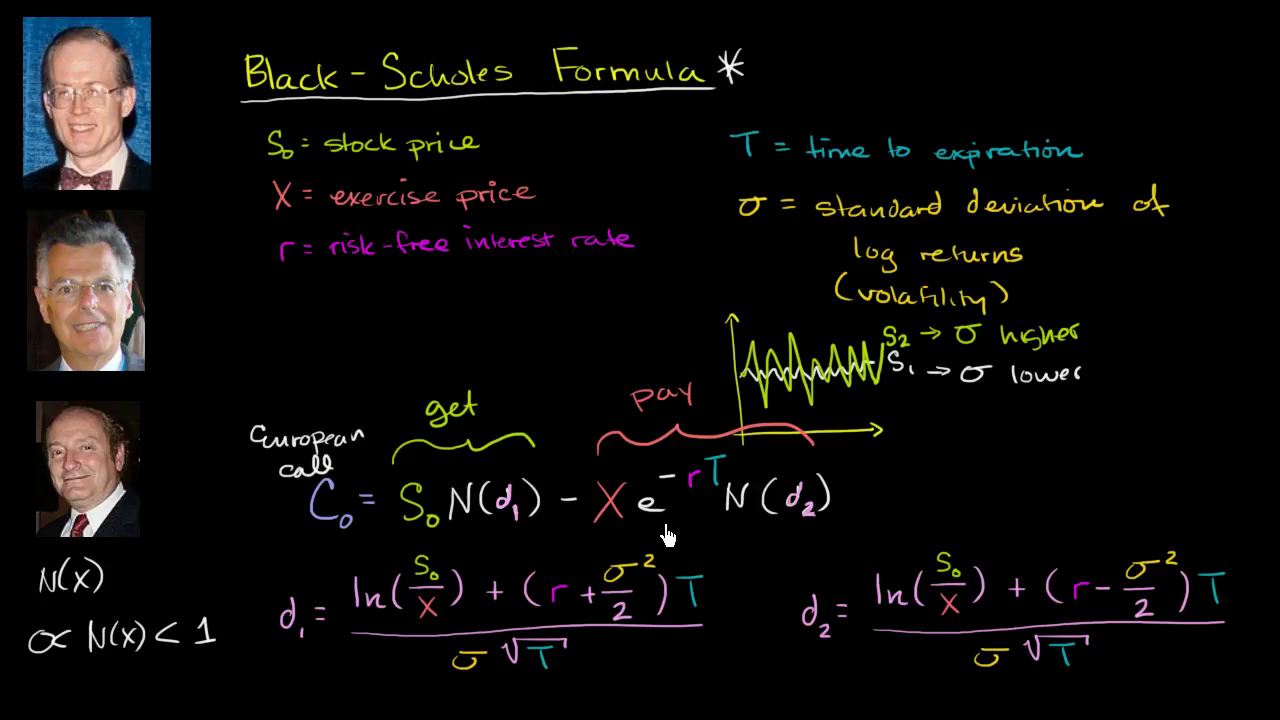 Black-Scholes Formula*
S₀ = stock price
X = exercise price
r = risk-free interest rate
T = time to expiration
σ = standard deviation of
log returns
(volatility)
S₂ → σ higher
S₁ → σ lower
get
pay
European
call
C₀ = S₀ N(d₁) - X e^(-rT) N(d₂)
N(x)
0< N(x) < 1
d₁ = (ln(S₀/X) + (r + σ²/2)T) / (σ√T)
d₂ = (ln(S₀/X) + (r - σ²/2)T) / (σ√T)